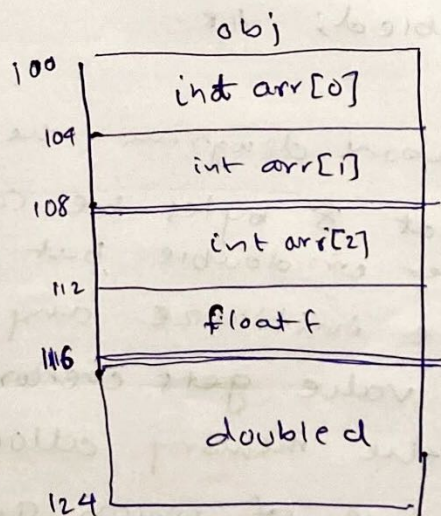 obj
100
int arr[0]
104
int arr[1]
108
int arr[2]
112
float f
116
double d
124